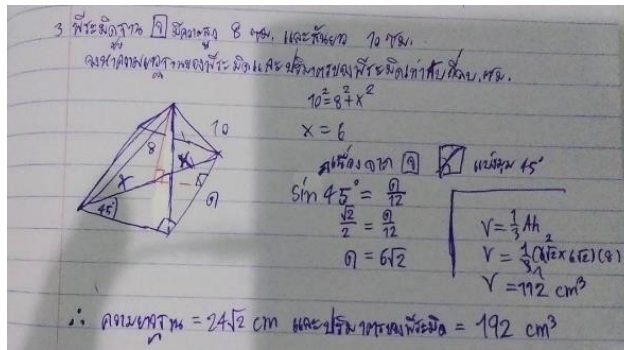 3 พีระมิดฐาน จ มีความสูง 8 ซม. และสันยาว 10 ซม.
จงหาความยาวรอบฐานของพีระมิดและปริมาตรของพีระมิดเท่ากับกี่ลบ.ซม.
10²=8²+x²
x = 6
เนื่องจาก จ แบ่งมุม 45°
sin 45° = a/12
√2/2 = a/12
a = 6√2
V = 1/3 Ah
V = 1/3 (6√2 x 6√2)(8)
V = 192 cm³
10
8
x
x
a
45°
∴ ความยาวฐาน = 24√2 cm และปริมาตรของพีระมิด = 192 cm³